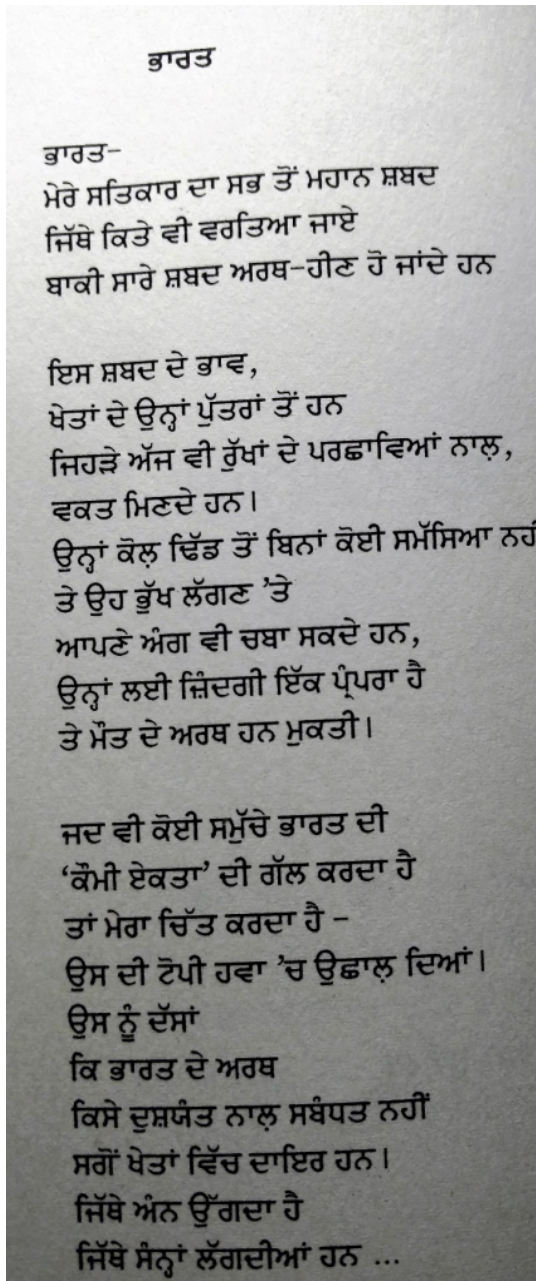 ਭਾਰਤ
ਭਾਰਤ-
ਮੇਰੇ ਸਤਿਕਾਰ ਦਾ ਸਭ ਤੋਂ ਮਹਾਨ ਸ਼ਬਦ
ਜਿੱਥੇ ਕਿਤੇ ਵੀ ਵਰਤਿਆ ਜਾਏ
ਬਾਕੀ ਸਾਰੇ ਸ਼ਬਦ ਅਰਥ-ਹੀਣ ਹੋ ਜਾਂਦੇ ਹਨ
ਇਸ ਸ਼ਬਦ ਦੇ ਭਾਵ,
ਖੇਤਾਂ ਦੇ ਉਨ੍ਹਾਂ ਪੁੱਤਰਾਂ ਤੋਂ ਹਨ
ਜਿਹੜੇ ਅੱਜ ਵੀ ਰੁੱਖਾਂ ਦੇ ਪਰਛਾਵਿਆਂ ਨਾਲ਼,
ਵਕਤ ਮਿਣਦੇ ਹਨ।
ਉਨ੍ਹਾਂ ਕੋਲ਼ ਢਿੱਡ ਤੋਂ ਬਿਨਾਂ ਕੋਈ ਸਮੱਸਿਆ
ਤੇ ਉਹ ਭੁੱਖ ਲੱਗਣ ’ਤੇ
ਆਪਣੇ ਅੰਗ ਵੀ ਚਬਾ ਸਕਦੇ ਹਨ,
ਉਨ੍ਹਾਂ ਲਈ ਜ਼ਿੰਦਗੀ ਇੱਕ ਪ੍ਰੰਪਰਾ ਹੈ
ਤੇ ਮੌਤ ਦੇ ਅਰਥ ਹਨ ਮੁਕਤੀ।
ਜਦ ਵੀ ਕੋਈ ਸਮੁੱਚੇ ਭਾਰਤ ਦੀ
‘ਕੌਮੀ ਏਕਤਾ’ ਦੀ ਗੱਲ ਕਰਦਾ ਹੈ
ਤਾਂ ਮੇਰਾ ਚਿੱਤ ਕਰਦਾ ਹੈ -
ਉਸ ਦੀ ਟੋਪੀ ਹਵਾ ’ਚ ਉਛਾਲ਼ ਦਿਆਂ।
ਉਸ ਨੂੰ ਦੱਸਾਂ
ਕਿ ਭਾਰਤ ਦੇ ਅਰਥ
ਕਿਸੇ ਦੁਸ਼ਯੰਤ ਨਾਲ਼ ਸਬੰਧਤ ਨਹੀਂ
ਸਗੋਂ ਖੇਤਾਂ ਵਿੱਚ ਦਾਇਰ ਹਨ।
ਜਿੱਥੇ ਅੰਨ ਉੱਗਦਾ ਹੈ
ਜਿੱਥੇ ਸੰਨ੍ਹਾਂ ਲੱਗਦੀਆਂ ਹਨ ...